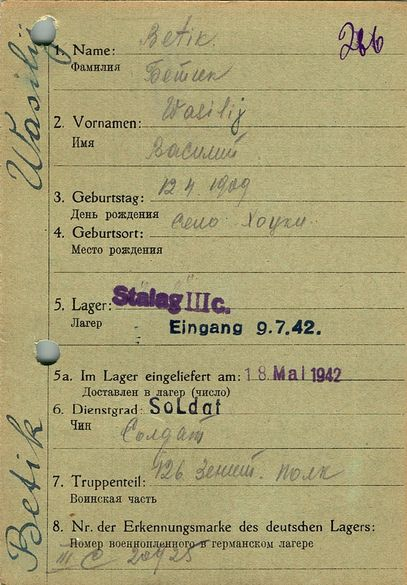 Betik
Wasilij
266
1. Name: Betik
Фамилия Бетик
2. Vornamen: Wasilij
Имя Василий
3. Geburtstag: 12 4 1909
День рождения
4. Geburtsort: село Хоцки
Место рождения
5. Lager: Stalag III c.
Лагер Eingang 9.7.42.
5a. Im Lager eingeliefert am: 18. Mai 1942
Доставлен в лагер (число)
6. Dienstgrad: Soldat
Чин Солдат
7. Truppenteil: 126 Зенит. полк
Воинская часть
8. Nr. der Erkennungsmarke des deutschen Lagers:
Номер военнопленного в германском лагере
III C